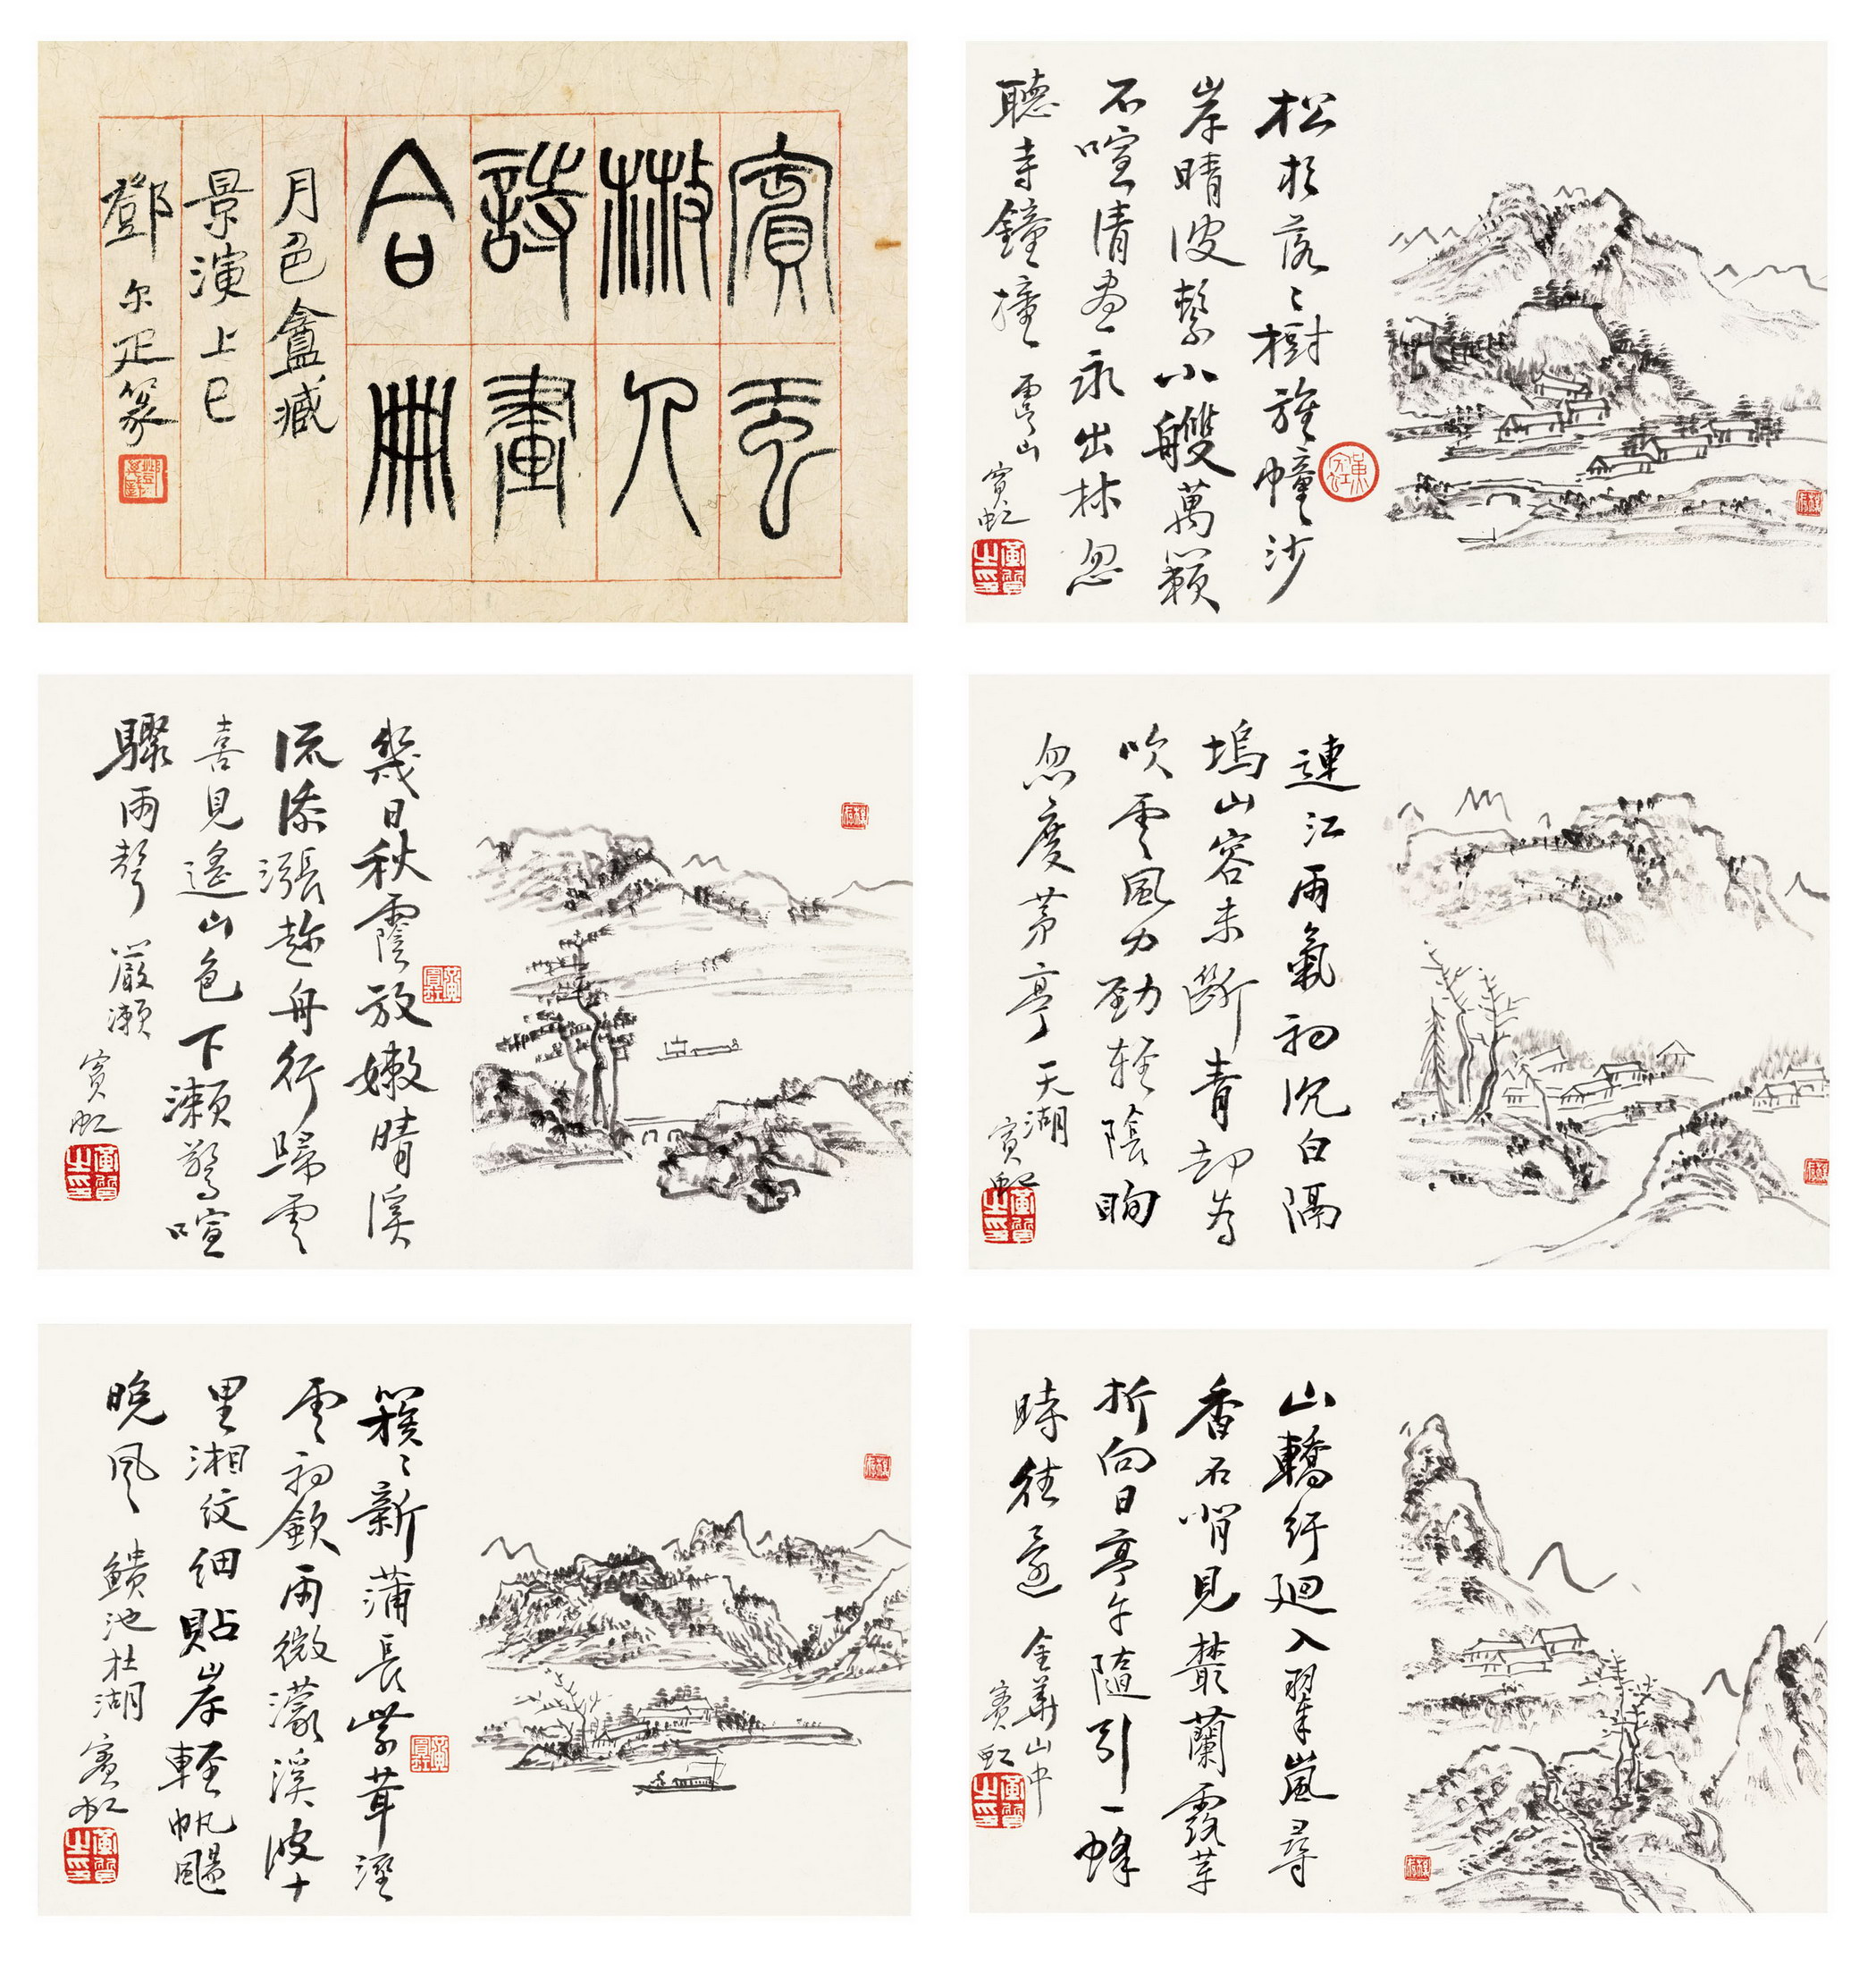 賓
㪔人
詩畫
合冊
月色盦臧
景演上巳
鄧尔疋篆
松杉落〻樹旌幢沙
岸晴波繫小艭萬籟
不喧清晝永出林忽
聽寺鐘撞
賓虹
幾日秋霒放嫩晴溪
流添漲趂舟行歸雲
喜見遙山色下瀨驚喧
驟雨聲 嚴瀨
賓虹
連江雨氣初沉白隔
塢山容未斷青却為
吹雲風力勁輕陰眴
忽度茅亭 天湖
賓虹
簇〻新蒲長紫茸溼
雲初斂雨微濛溪波十
里湘紋細貼岸輕帆颺
晚風 池杜湖
賓虹
山轎紆廻入翠嵐尋
香石背見叢蘭露芽
折向日亭午隨引一蜂
時往還 金華山中
賓虹